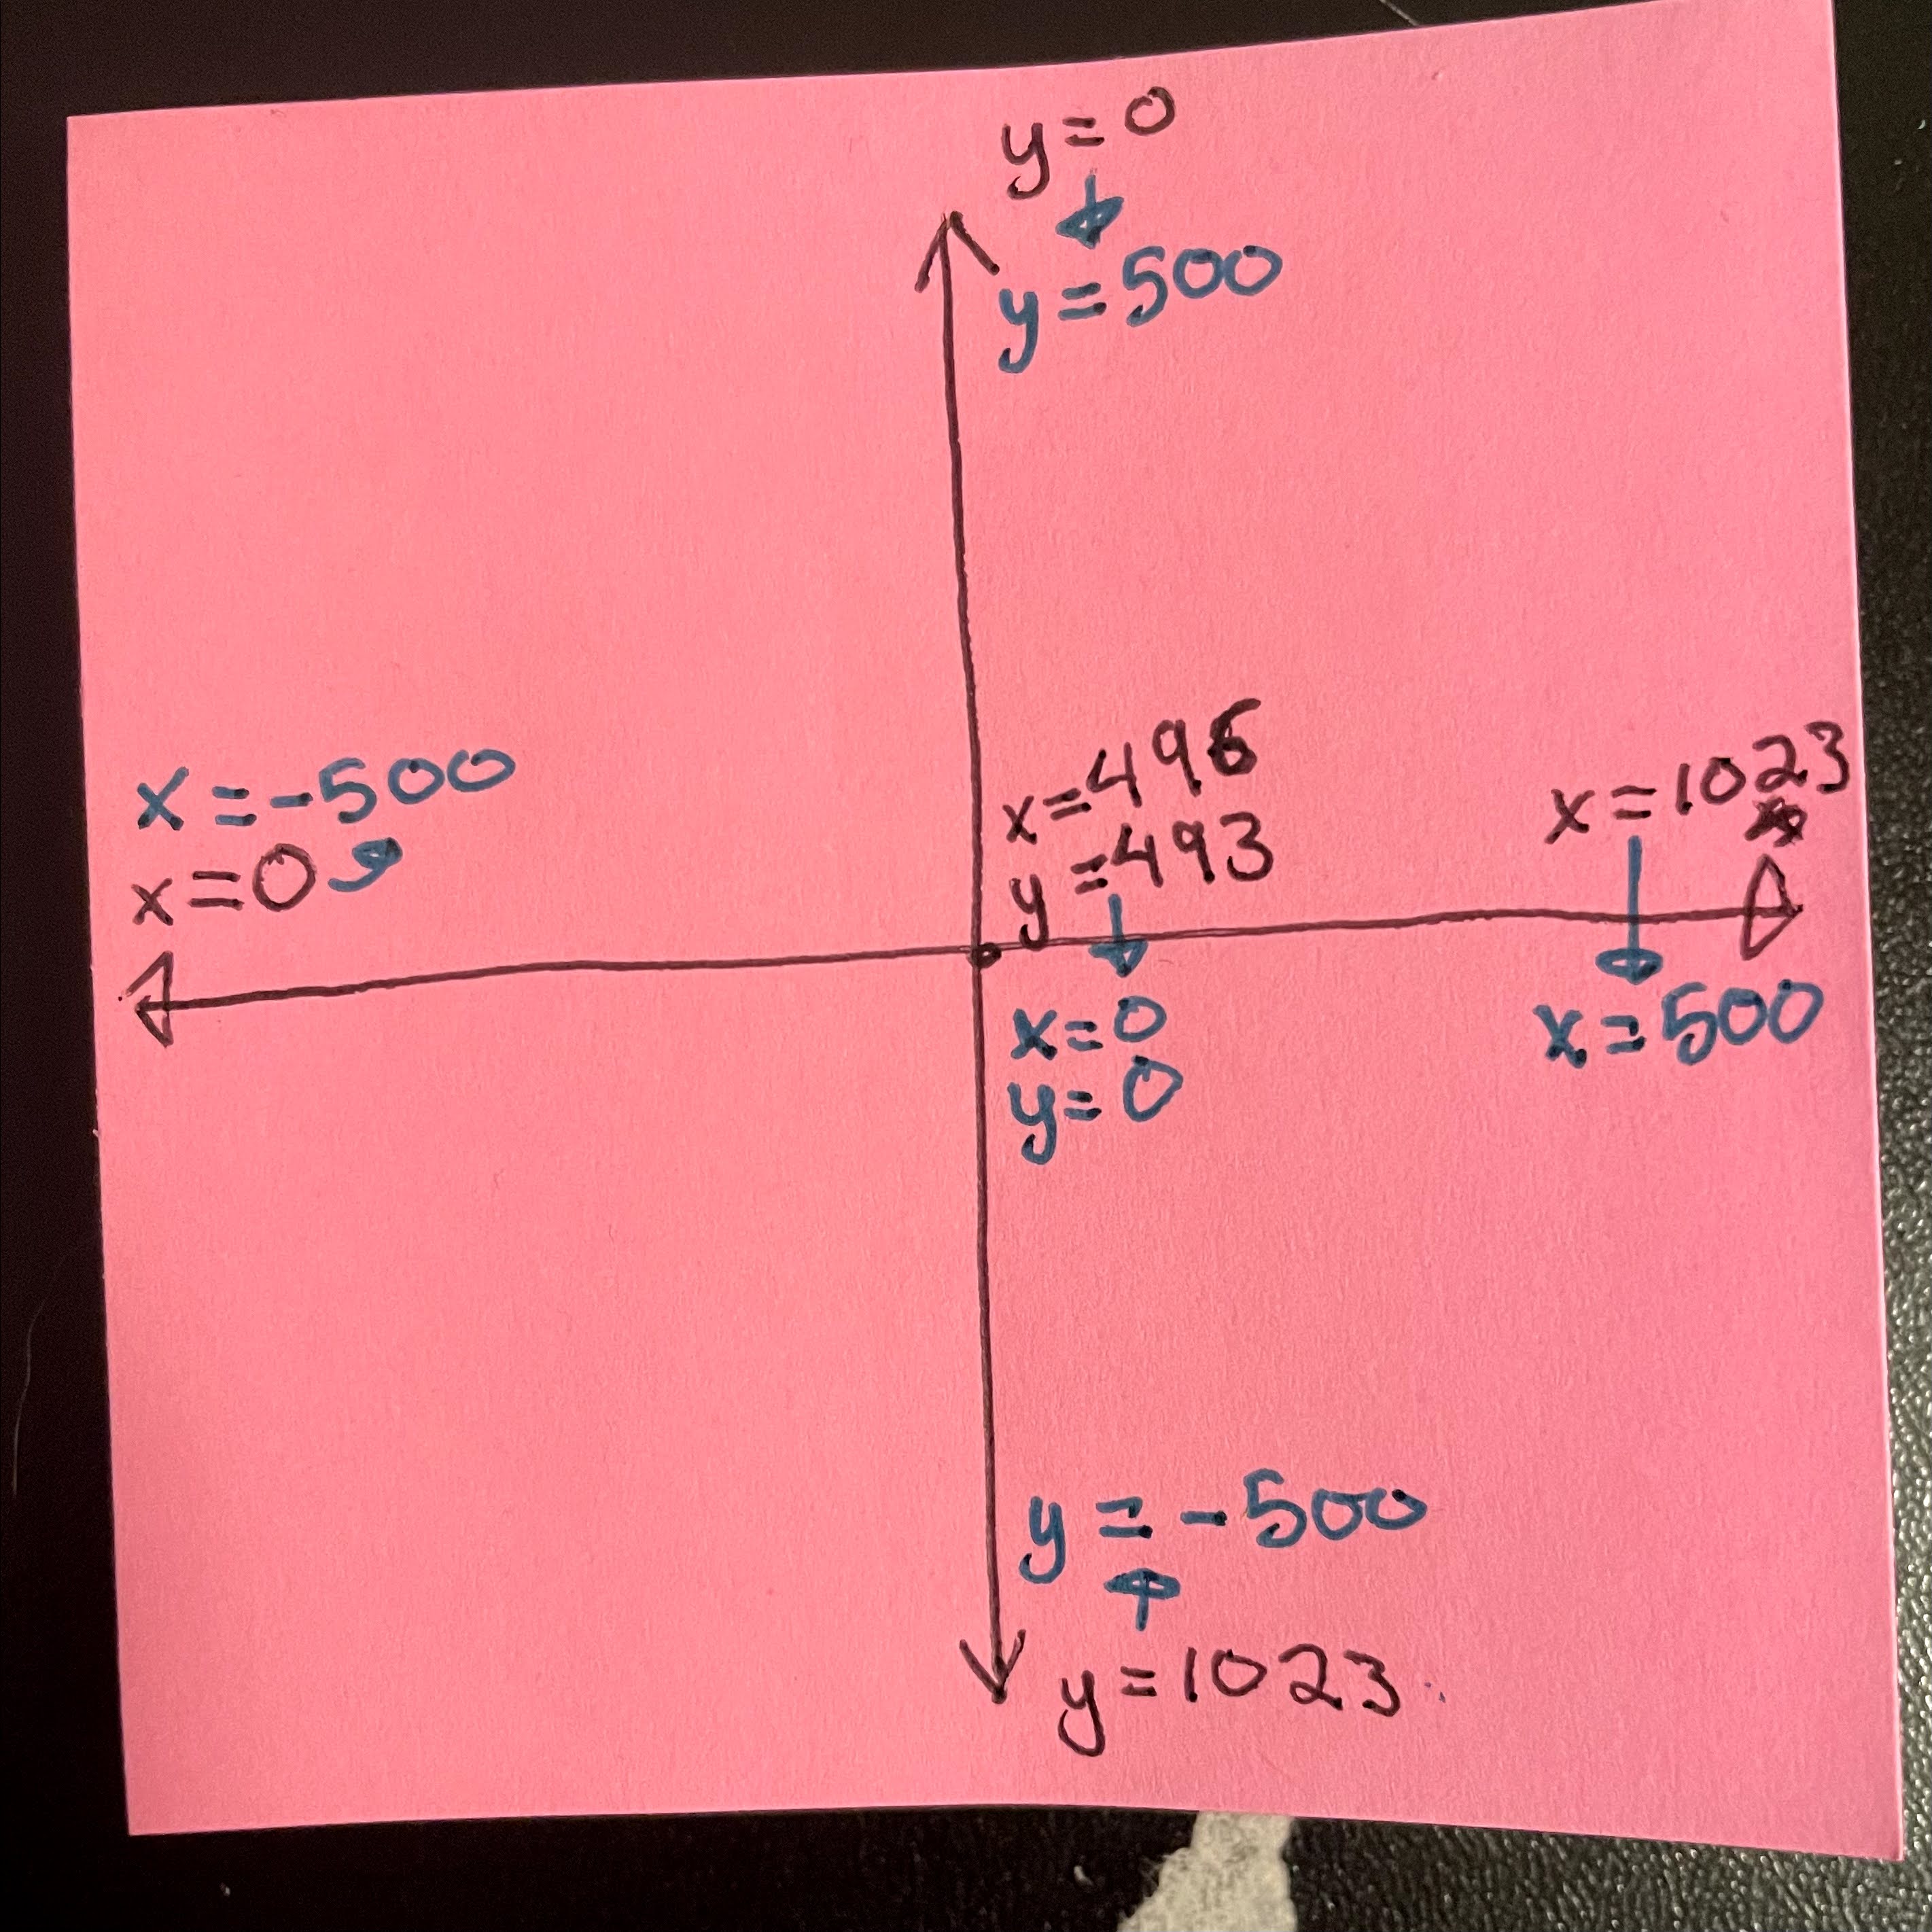 y=0
y=500
x=-500
x=0
x=496
y=493
x=1023
x=0
y=0
x=500
y=-500
y=1023